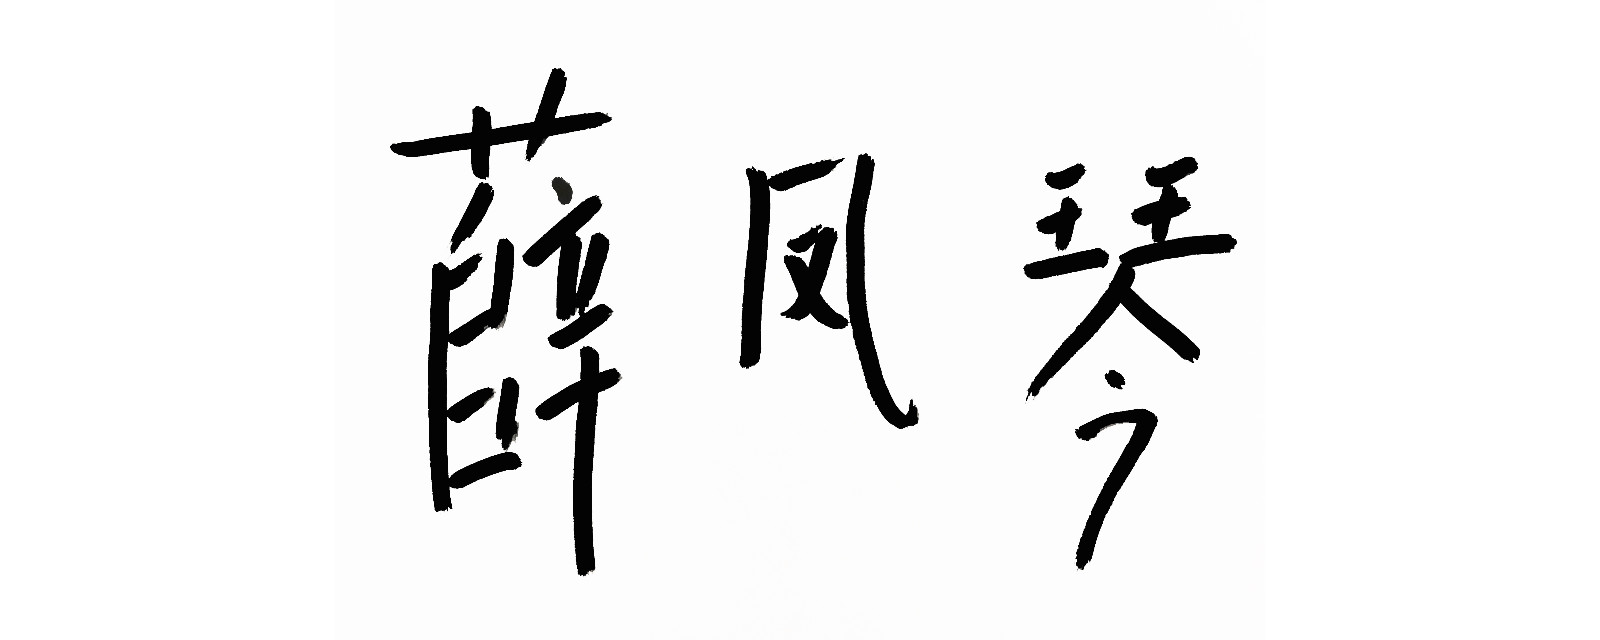 薛凤琴